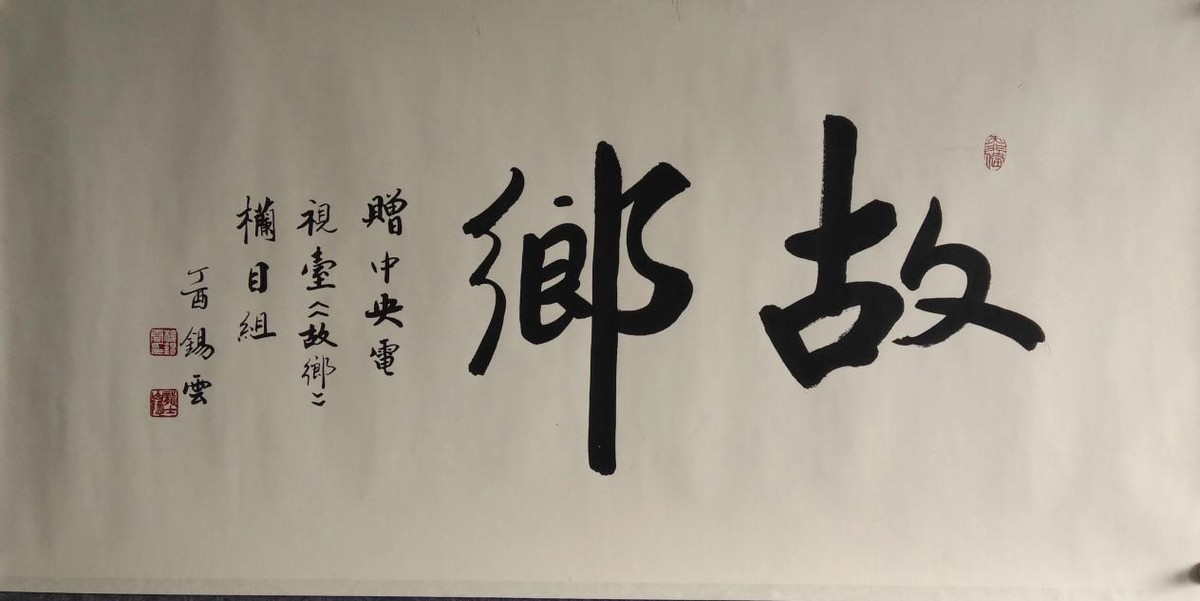 故鄉
贈中央電
視臺《故鄉》
欄目組
丁酉錫雲